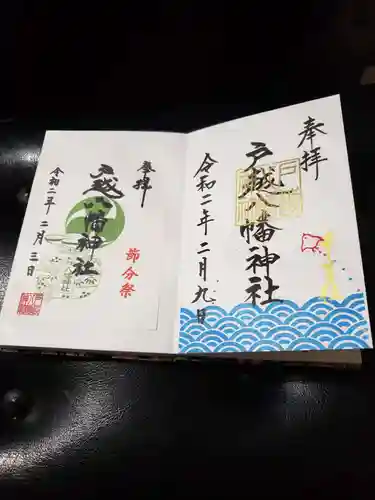 奉拝
戸越八幡神社
令和二年二月九日
奉拝
節分祭
戸越八幡神社
令和二年二月三日